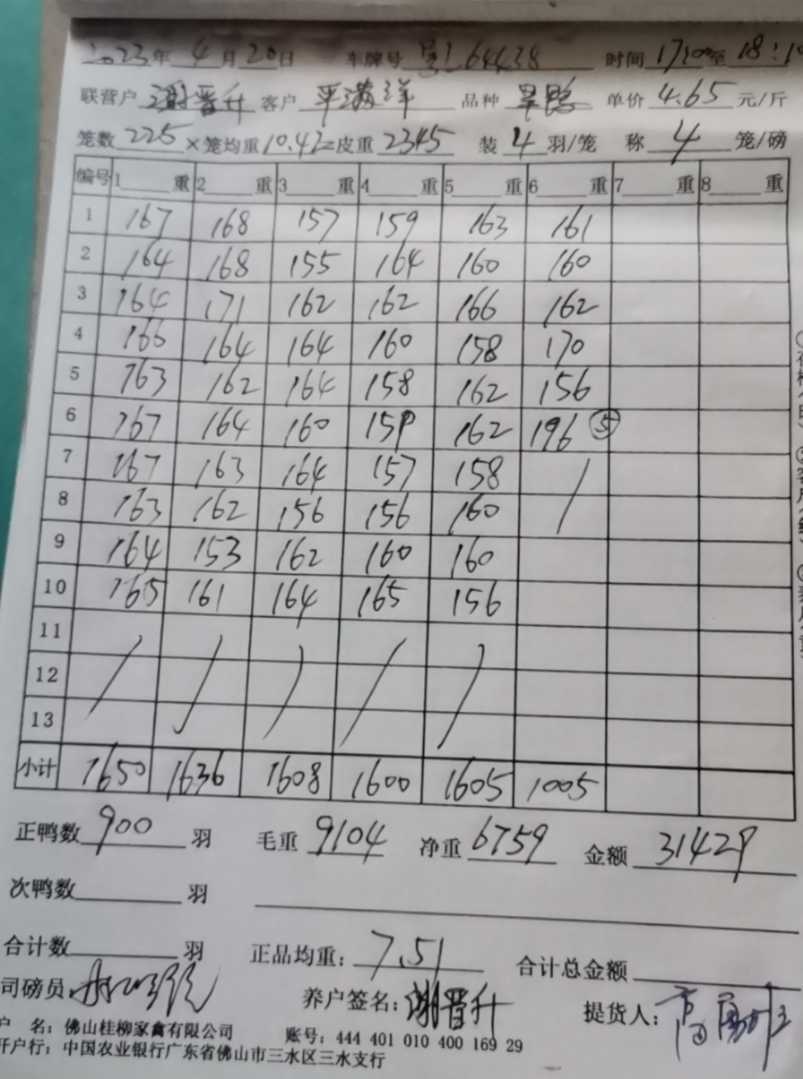 2023年4月20日 车牌号 64438 时间 17:00至18:1
联营户 谢晋升 客户 平满洋 品种 旱鸭 单价 4.65 元/斤
笼数 225 ×笼均重 10.42=皮重 2345 装 4 羽/笼 称 4 笼/磅
编号 1 重 2 重 3 重 4 重 5 重 6 重 7 重 8 重
1 167 168 157 159 163 161
2 164 168 155 164 160 160
3 164 171 162 162 166 162
4 166 164 164 160 158 170
5 163 162 164 158 162 156
6 167 164 160 159 162 196 ⑤
7 167 163 164 157 158 /
8 163 162 156 156 160
9 164 153 162 160 160
10 165 161 164 165 156
11
12 / / / / /
13
小计 1650 1636 1608 1600 1605 1005
正鸭数 900 羽 毛重 9104 净重 6759 金额 31429
次鸭数 羽
合计数 羽 正品均重: 7.51 合计总金额
司磅员: 养户签名: 谢晋升 提货人:
户 名: 佛山桂柳家禽有限公司 账号: 444 401 010 400 169 29
开户行: 中国农业银行广东省佛山市三水区三水支行